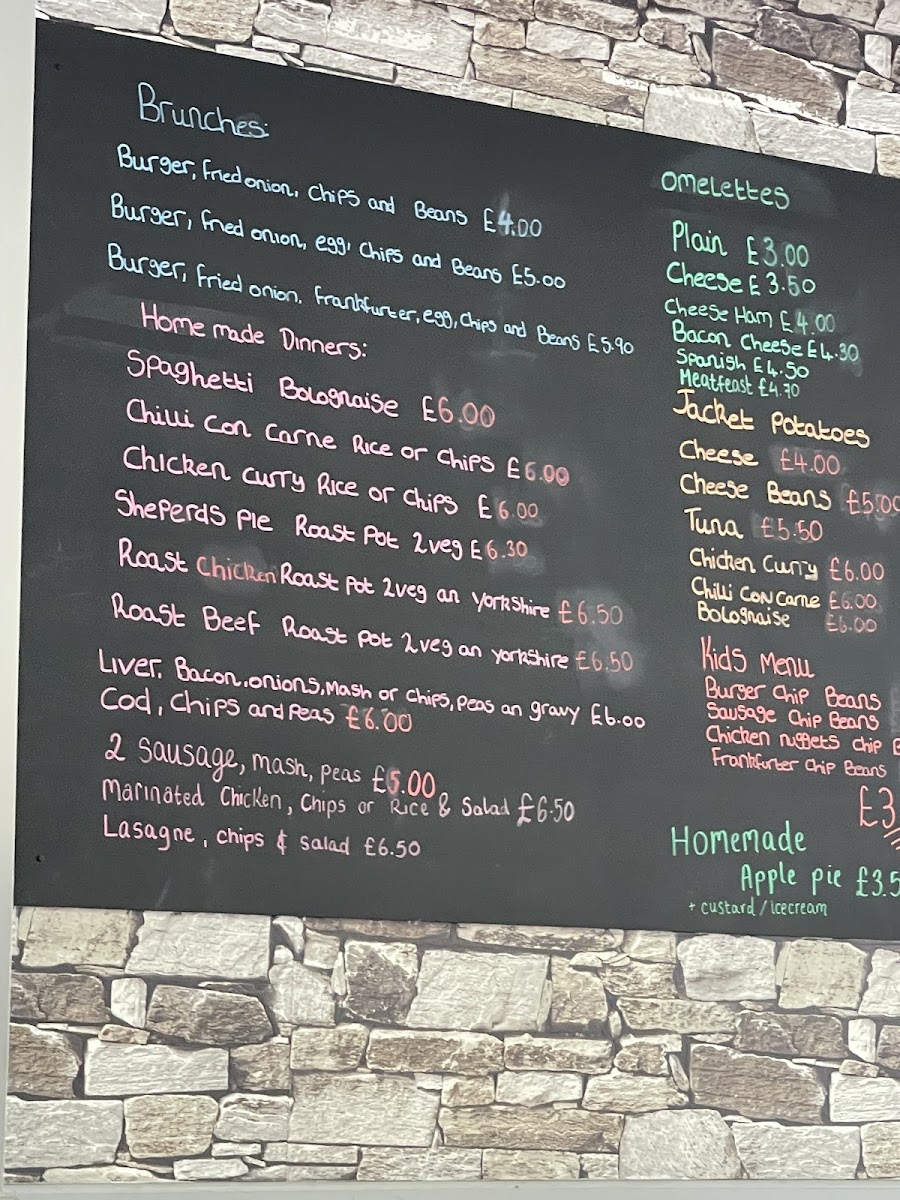 Brunches:
Burger, Fried onion, Chips and Beans £4.00
Burger, fried onion, egg, Chips and Beans £5.00
Burger, Fried onion, Frankfurter, egg, Chips and Beans £5.90
Home made Dinners:
Spaghetti Bolognaise £6.00
Chilli Con Carne Rice or Chips £6.00
Chicken Curry Rice or Chips £6.00
Sheperds Pie Roast Pot 2veg £6.30
Roast Chicken Roast Pot 2veg an Yorkshire £6.50
Roast Beef Roast Pot 2veg an Yorkshire £6.50
Liver, Bacon, onions, Mash or Chips, Peas an gravy £6.00
Cod, Chips and Peas £6.00
2 Sausage, mash, peas £5.00
Marinated Chicken, Chips or Rice & Salad £6.50
Lasagne, chips & Salad £6.50
Omelettes
Plain £3.00
Cheese £3.50
Cheese Ham £4.00
Bacon Cheese £4.30
Spanish £4.50
Meatfeast £4.70
Jacket Potatoes
Cheese £4.00
Cheese Beans £5.00
Tuna £5.50
Chicken Curry £6.00
Chilli Con Carne £6.00
Bolognaise £6.00
Kids Menu
Burger Chip Beans
Sausage Chip Beans
Chicken nuggets chip
Frankfurter Chip Beans
£3
Homemade
Apple pie £3.5
+ custard / icecream